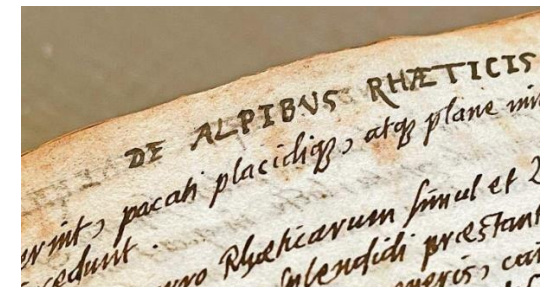 DE ALPIBVS RHÆTICIS
erint, pacati placidiq₃, atq₃ plane
cedunt.
Rhæticarum simul et
splendidi præstant
generis,